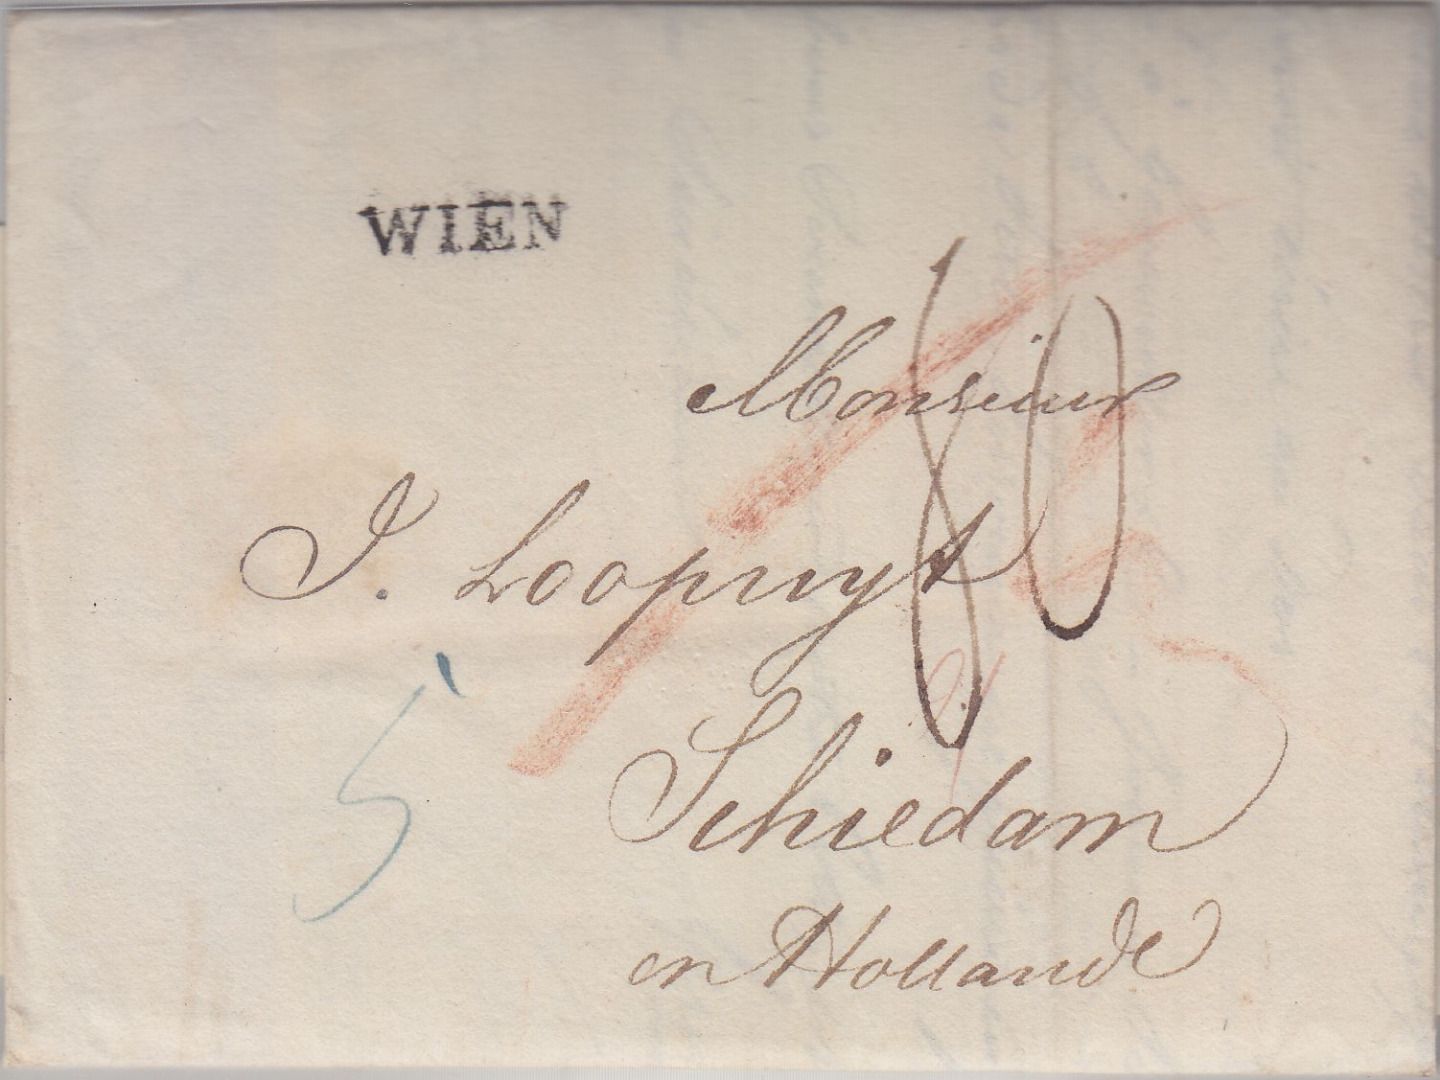 WIEN
Monsieur
80
J. Loopuyt
5
Schiedam
en Hollande